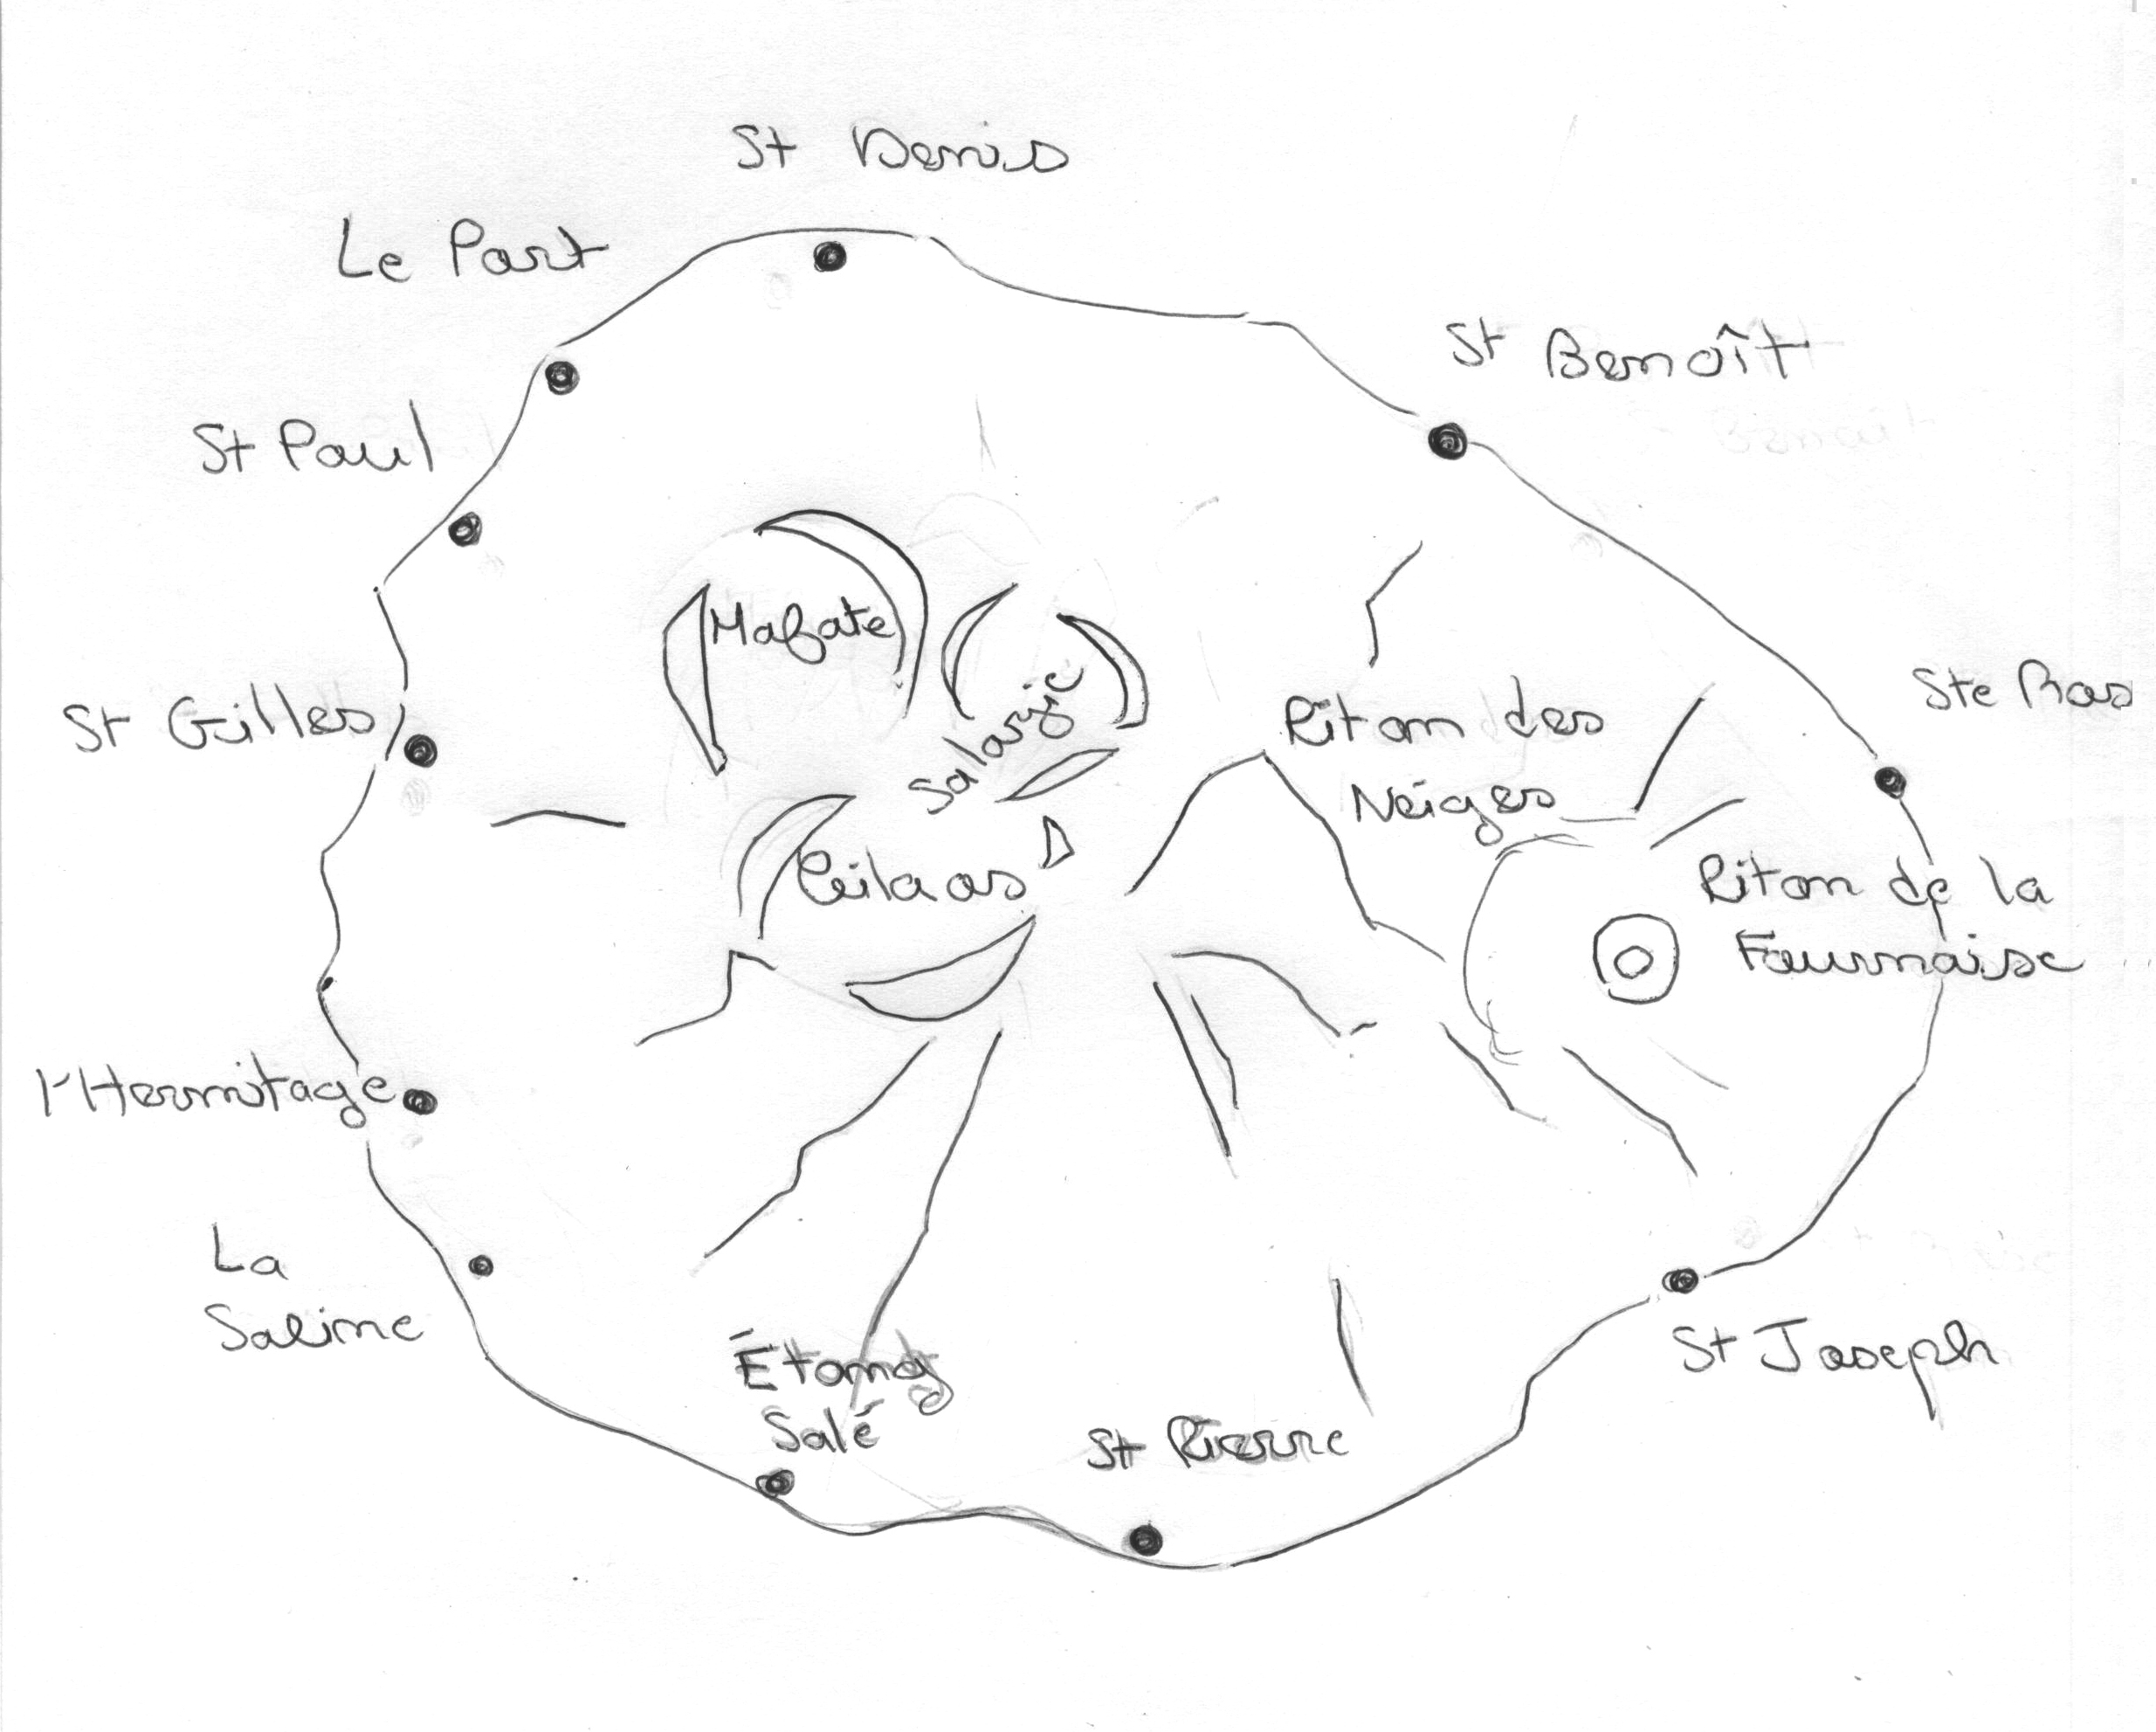 St Denis
Le Port
St Benoît
St Paul
Mafate
Salazie
St Gilles
Ste Ros
Piton des
Neiges
Cilaos
Piton de la
Fournaise
l'Hermitage
La
Saline
Étang
Salé
St Pierre
St Joseph